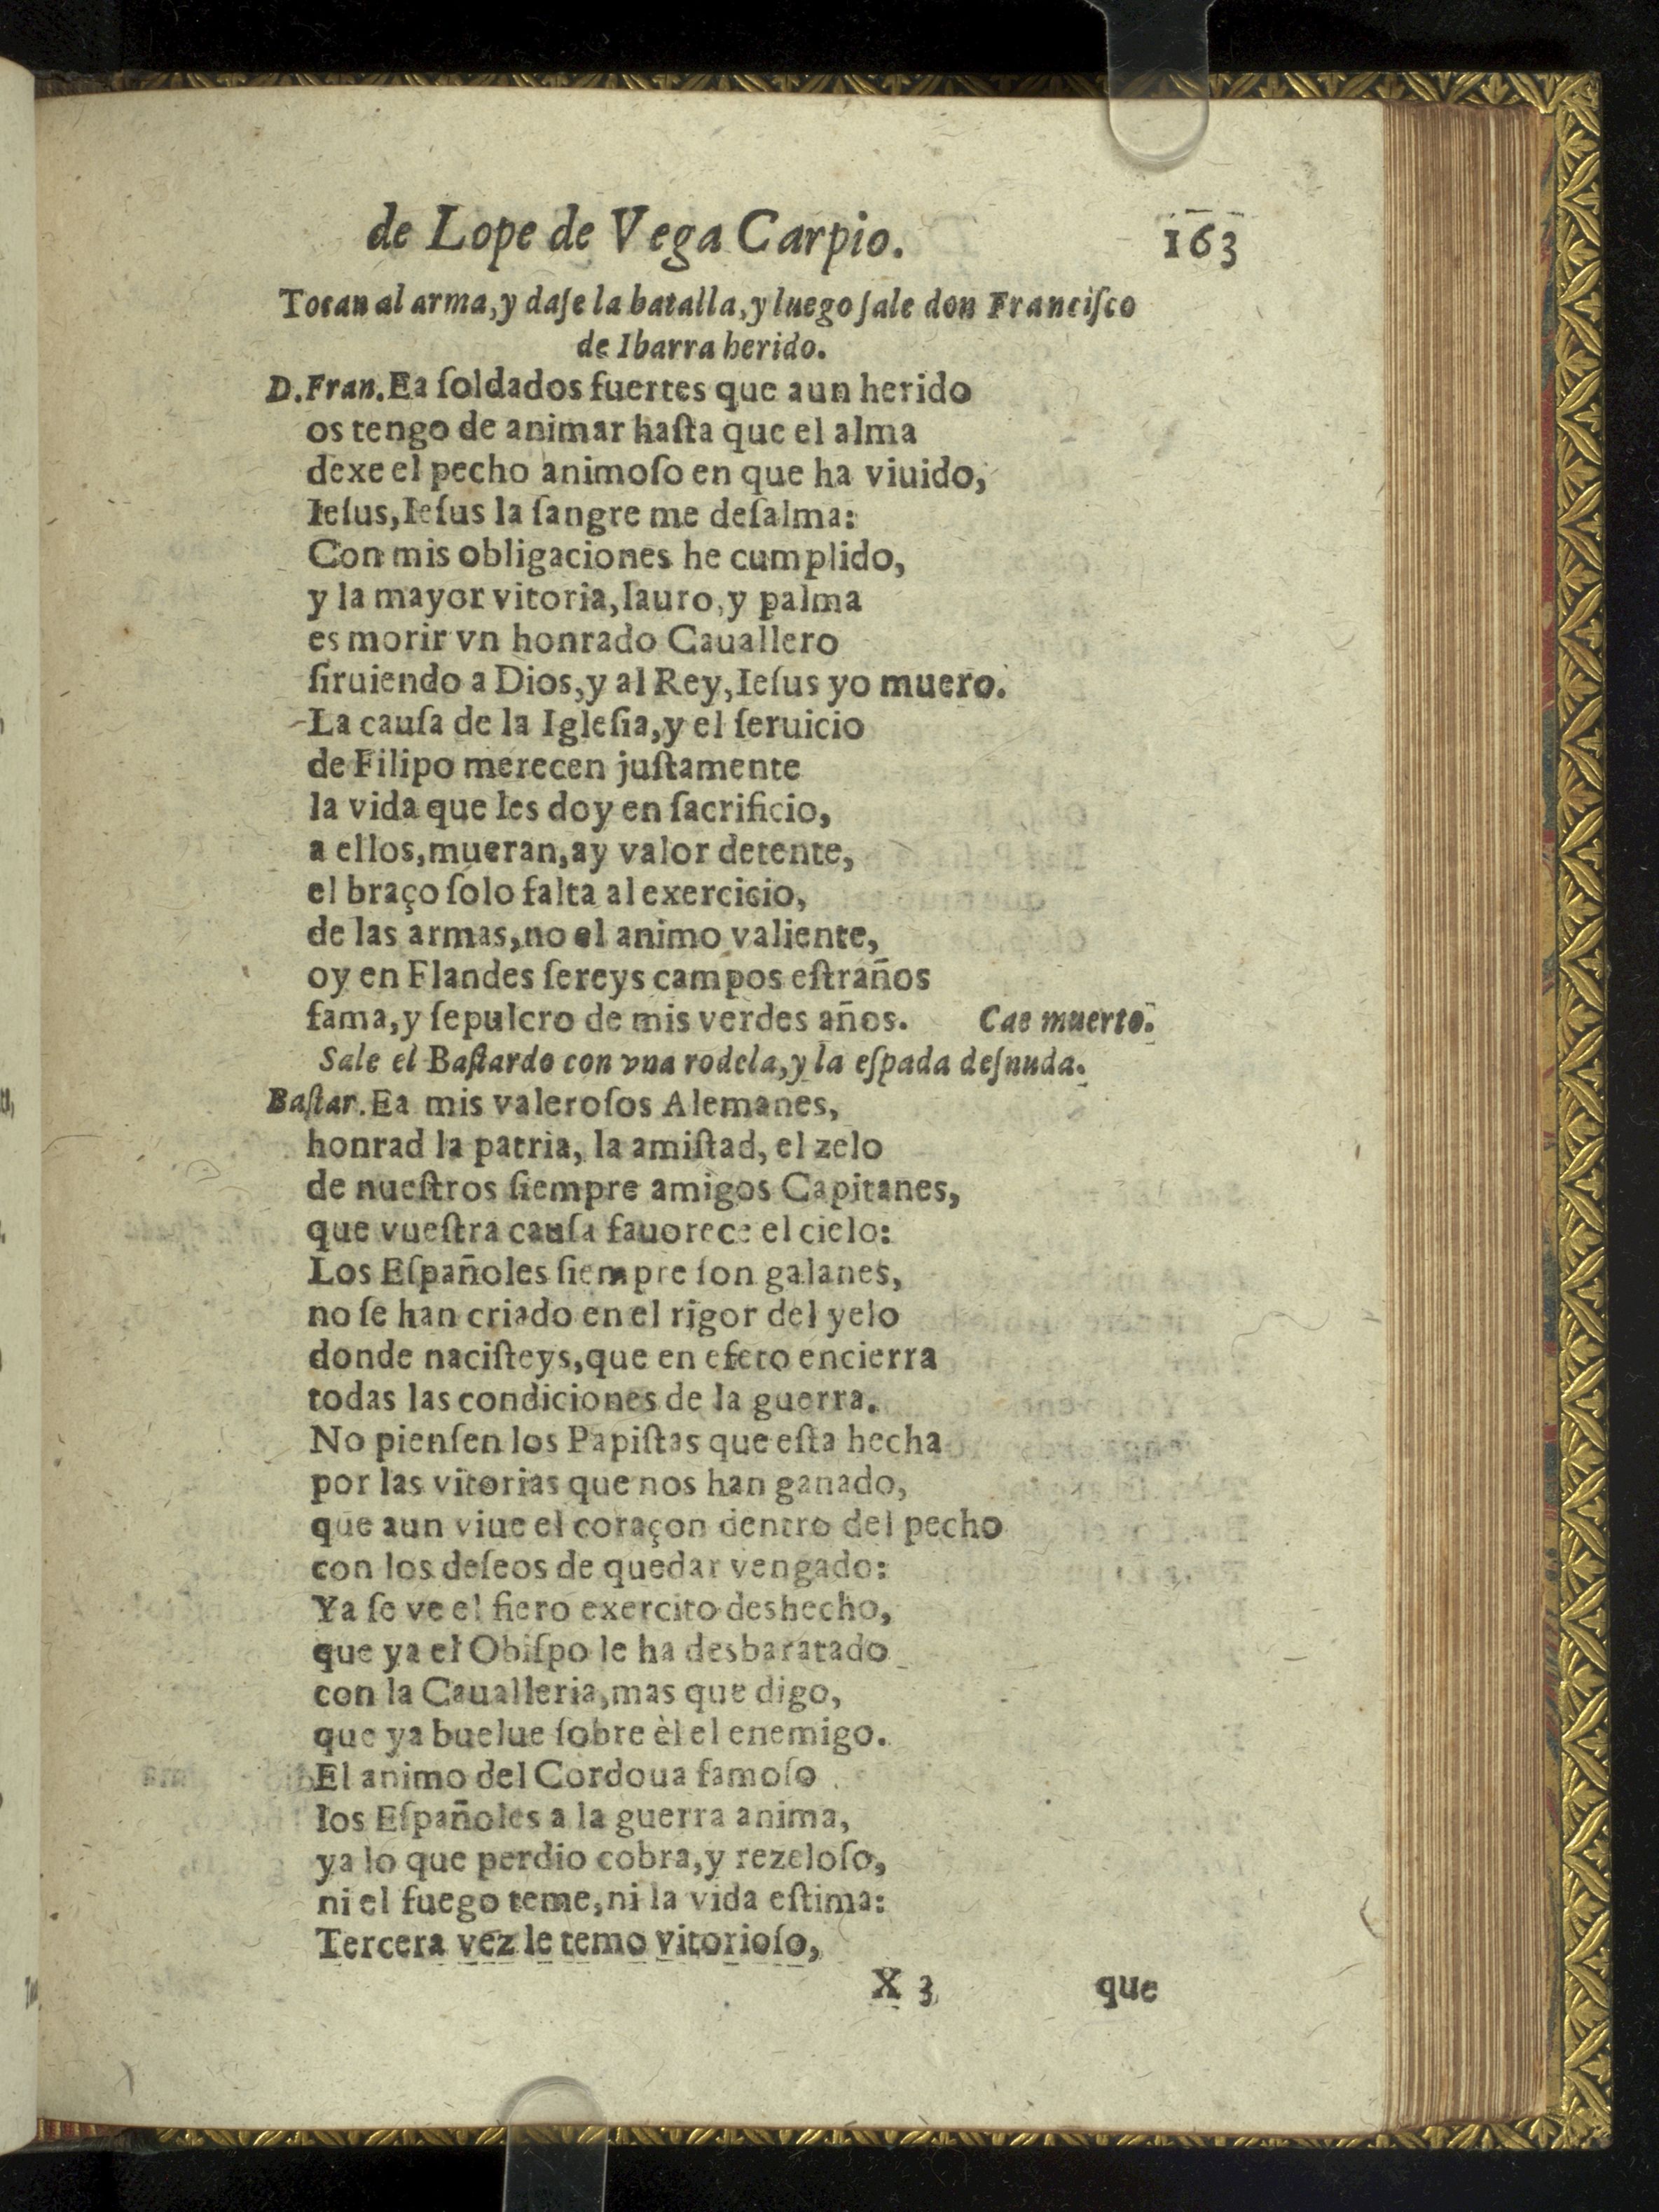 de Lope de Vega Carpio. 163
Tocan al arma, y daſe la batalla, y luego ſale don Franciſco
de Ibarra herido.
D.Fran. Ea ſoldados fuertes que aun herido
os tengo de animar haſta que el alma
dexe el pecho animoſo en que ha viuido,
Ieſus, Ieſus la ſangre me deſalma:
Con mis obligaciones he cumplido,
y la mayor vitoria, lauro, y palma
es morir vn honrado Cauallero
ſiruiendo a Dios, y al Rey, Ieſus yo muero.
La cauſa de la Igleſia, y el ſeruicio
de Filipo merecen juſtamente
la vida que les doy en ſacrificio,
a ellos, mueran, ay valor detente,
el braço ſolo falta al exercicio,
de las armas, no el animo valiente,
oy en Flandes ſereys campos eſtraños
fama, y ſepulcro de mis verdes años. Cae muerto.
Sale el Baſtardo con vna rodela, y la eſpada deſnuda.
Baſtar. Ea mis valeroſos Alemanes,
honrad la patria, la amiſtad, el zelo
de nueſtros ſiempre amigos Capitanes,
que vueſtra cauſa fauorece el cielo:
Los Eſpañoles ſiempre ſon galanes,
no ſe han criado en el rigor del yelo
donde naciſteys, que en efeto encierra
todas las condiciones de la guerra.
No pienſen los Papiſtas que eſta hecha
por las vitorias que nos han ganado,
que aun viue el coraçon dentro del pecho
con los deſeos de quedar vengado:
Ya ſe ve el fiero exercito deshecho,
que ya el Obiſpo le ha desbaratado
con la Caualleria, mas que digo,
que ya buelue ſobre èl el enemigo.
El animo del Cordoua famoſo
los Eſpañoles a la guerra anima,
ya lo que perdio cobra, y rezeloſo,
ni el fuego teme, ni la vida eſtima:
Tercera vez le temo vitorioſo,
X 3 que